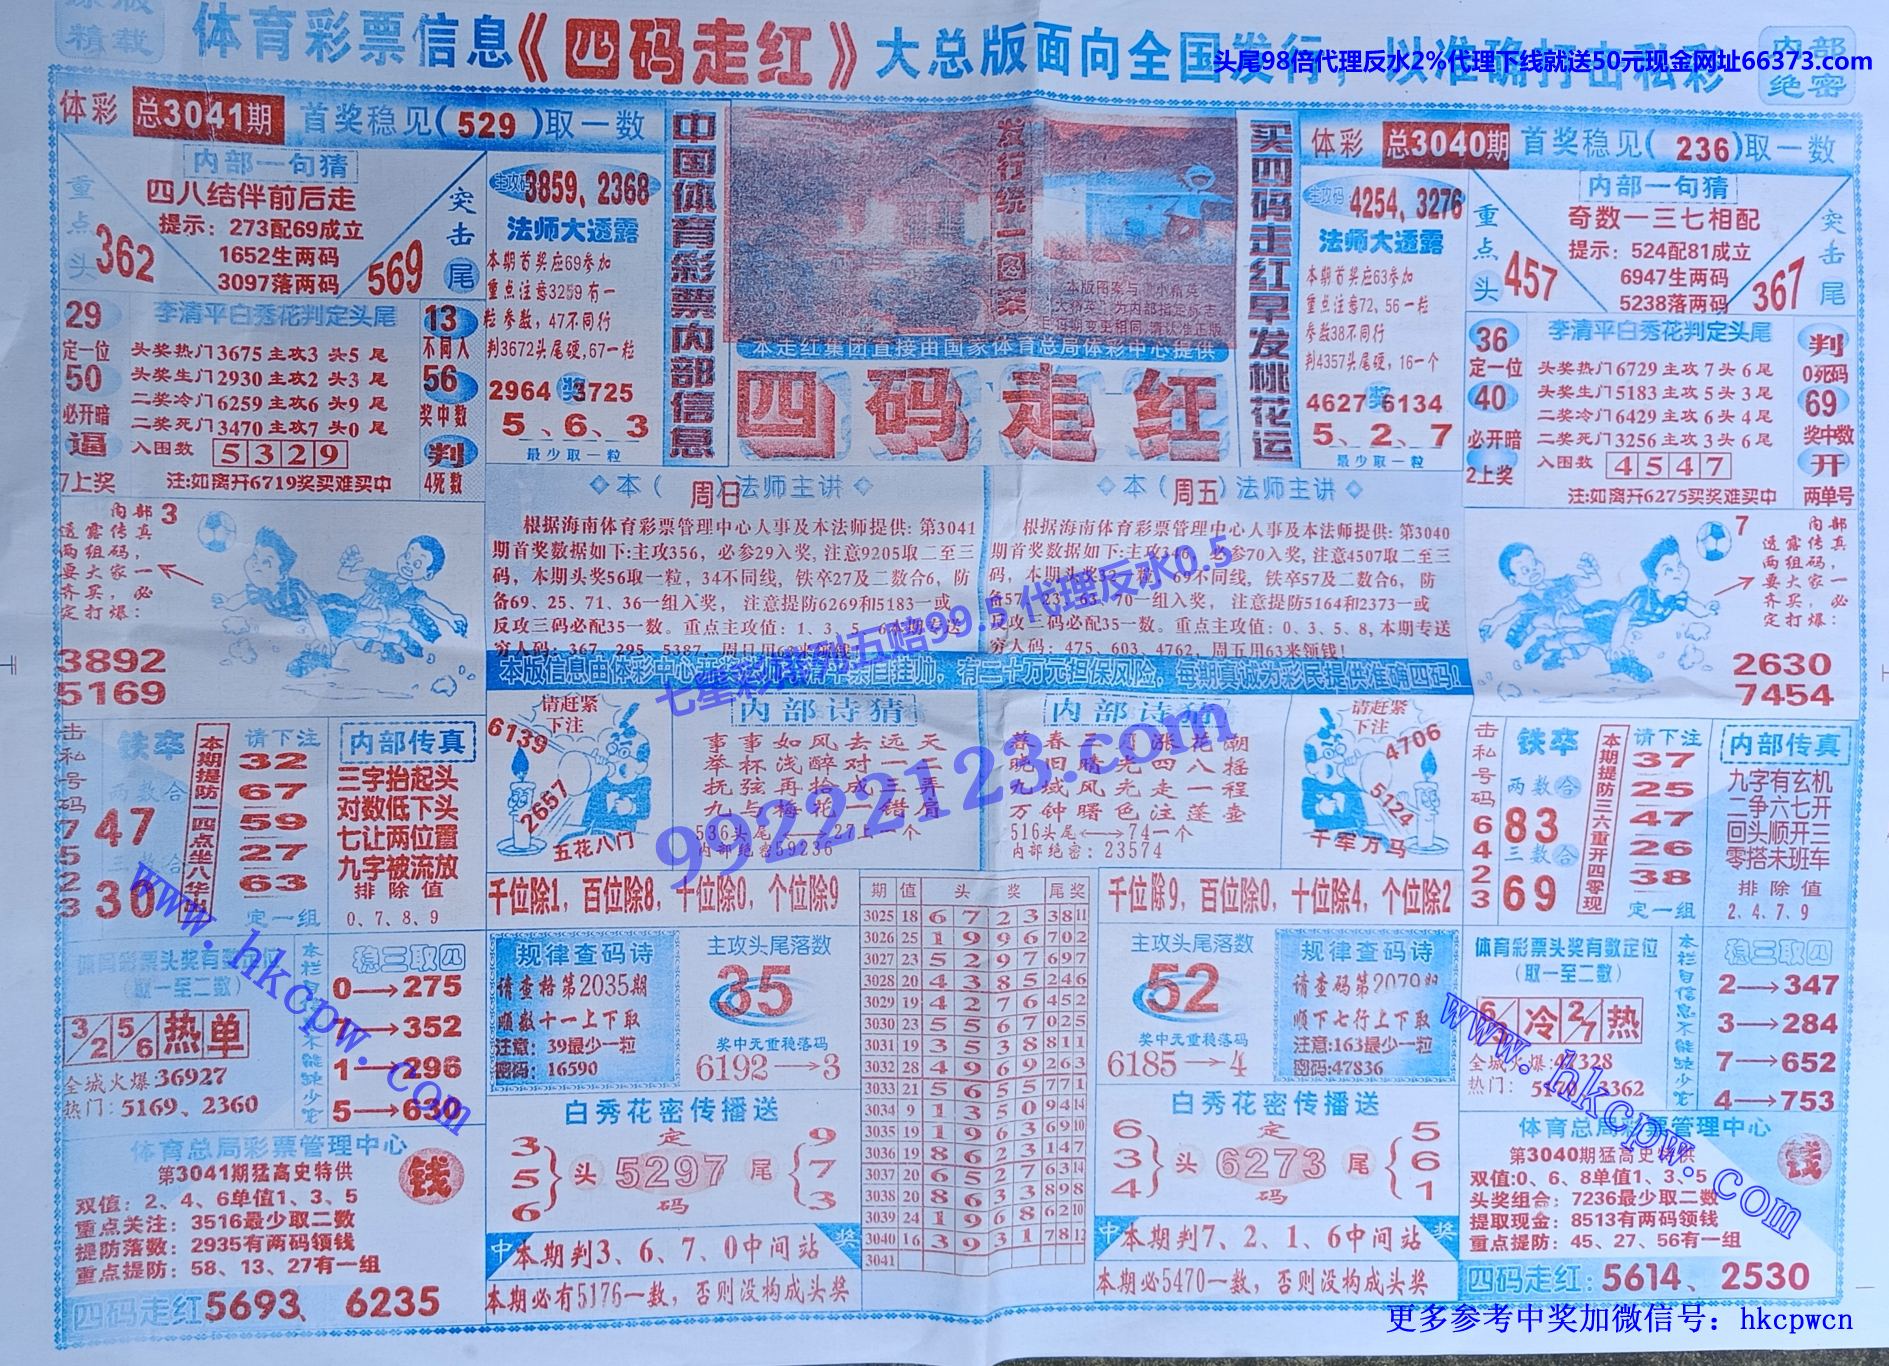 精载
体育彩票信息《四码走红》大总版面向全国发行，以准确打击私彩
内部
绝密
头尾98倍代理反水2%代理下线就送50元现金网址66373.com
体彩 总3041期 首奖稳见(529)取一数
内部一句猜
重点头
362
四八结伴前后走
提示: 273配69成立
1652生两码
3097落两码
突击尾
569
主攻码 3859、2368
法师大透露
本期首奖应69参加
重点注意3259有一
粒参数，47不同行
判3672头尾硬,67一粒
2964 奖 3725
5、6、3
最少取一粒
29
定一位
50
必开暗
逼
7上奖
李清平白秀花判定头尾
头奖热门3675主攻3头5尾
头奖生门2930主攻2头3尾
二奖冷门6259主攻6头9尾
二奖死门3470主攻7头0尾
入围数 5329
注:如离开6719奖买难买中
13
不同入
56
奖中数
判
4死数
中国体育彩票内部信息
发行统一图案
本版图案与《小精英》
大精英》为内部指定师作
每期变更相同,请认准正版
本走红集团直接由国家体育总局体彩中心提供
四码走红
买四码走红早发桃花运
体彩 总3040期 首奖稳见(236)取一数
主攻码 4254、3276
法师大透露
本期首奖应63参加
重点注意72、56一粒
参数38不同行
判4357头尾硬，16一个
4627 奖 6134
5、2、7
最少取一粒
内部一句猜
重点头
457
奇数一三七相配
提示: 524配81成立
6947生两码
5238落两码
突击尾
367
36
定一位
40
必开暗
2上奖
李清平白秀花判定头尾
头奖热门6729主攻7头6尾
头奖生门5183主攻5头3尾
二奖冷门6429主攻6头4尾
二奖死门3256主攻3头6尾
入围数 4547
注:如离开6275买奖难买中
判
0死码
69
奖中数
开
两单号
内部 3
透露传真
两组码，
要大家一
齐买，必
定打爆:
3892
5169
◇本( 周日 )法师主讲◇
根据海南体育彩票管理中心人事及本法师提供: 第3041
期首奖数据如下:主攻356，必参29入奖, 注意9205取二至三
码，本期头奖56取一粒，34不同线，铁卒27及二数合6，防
备69、25、71、36一组入奖， 注意提防6269和5183一或
反攻三码必配35一数。重点主攻值: 1、3、5、6本期专送
穷人码: 367、295、5387，周日用63来领钱！
◇本( 周五 )法师主讲◇
根据海南体育彩票管理中心人事及本法师提供: 第3040
期首奖数据如下:主攻346，必参70入奖, 注意4507取二至三
码，本期头奖32一粒，69不同线，铁卒57及二数合6，防
备57、237、63、70一组入奖， 注意提防5164和2373一或
反攻三码必配35一数。重点主攻值: 0、3、5、8, 本期专送
穷人码: 475、603、4762，周五用63来领钱！
7 内部
透露传真
两组码，
要大家一
齐买，必
定打爆:
2630
7454
有二十万元担保风险，每期真诚为彩民提供准确四码!
七星彩排列五赔99.5 代理反水0.5
99222123.com
击私号码7523
铁卒
两数合
47
三数合
30
本期提防一四点坐八华出
请下注
32
67
59
27
63
定一组
内部传真
三字抬起头
对数低下头
七让两位置
九字被流放
排除值
0、7、8、9
6139
请赶紧
下注
2657
五花八门
内部诗猜
事事如风去远天
举杯浅醉对一二
抚弦再拾成三弄
九与梅花一错肩
536头尾⟷27上一个
内部绝密59236
内部诗猜
暮春三寸涨花潮
晓旧晴光四八摇
九域风光走一程
万钟曙色注蓬壶
516头尾⟷74一个
内部绝密: 23574
请赶紧
下注
4706
5124
千军万马
击私号码6423
铁卒
两数合
83
三数合
69
本期提防三六重开四零现
请下注
37
25
47
26
38
定一组
内部传真
九字有玄机
二争六七开
回头顺开三
零搭未班车
排除值
2、4、7、9
千位除1，百位除8，十位除0、个位除9
期 值 头奖 尾奖
3025 18 6 7 2 3 38 11
3026 25 1 9 9 6 702
3027 23 5 2 9 7 697
3028 20 4 3 8 5 246
3029 19 4 2 7 6 452
3030 23 5 5 6 7 025
3031 19 3 5 3 8 811
3032 28 4 9 6 9 263
3033 21 5 6 5 5 771
3034 9 1 3 5 0 94 14
3035 19 1 9 6 3 69 10
3036 19 8 6 2 3 147
3037 20 6 5 2 7 63 14
3038 20 8 6 3 3 898
3039 24 1 9 6 8 62 10
3040 16 3 9 3 1 78 12
3041
千位除9，百位除0，十位除4，个位除2
体育彩票头奖有数定位
(取一至二数)
3/2 5/6 热 单
全城火爆:36927
热门: 5169、2360
本栏自信息不能缺少它
稳三取四
0→275
1→352
1→296
5→630
规律查码诗
请查格第2035期
顺数十一上下取
注意: 39最少一粒
密码: 16590
主攻头尾落数
35
奖中无重稳落码
6192→3
主攻头尾落数
52
奖中无重稳落码
6185→4
规律查码诗
请查码第2079期
顺下七行上下取
注意:163最少一粒
密码:47836
体育彩票头奖有数定位
(取一至二数)
冷 2/7 热
全城火爆:47328
热门: 5170、3362
本栏自信息不能缺少它
稳三取四
2→347
3→284
7→652
4→753
体育总局彩票管理中心
第3041期猛高史特供
双值: 2、4、6单值1、3、5
重点关注: 3516最少取二数
提防落数: 2935有两码领钱
重点提防: 58、13、27有一组
钱
四码走红5693、 6235
白秀花密传播送
3
5
6
头
定
5297
码
尾
9
7
3
中 本期判3、6、7、0中间站 奖
本期必有5176一数，否则没构成头奖
白秀花密传播送
6
3
4
头
定
6273
码
尾
5
6
1
中 本期判7、2、1、6中间站 奖
本期必5470一数，否则没构成头奖
体育总局彩票管理中心
第3040期猛高史特供
双值:0、6、8单值1、3、5
头奖组合: 7236最少取二数
提取现金: 8513有两码领钱
重点提防: 45、27、56有一组
钱
四码走红: 5614、2530
www.hkcpw.com
www.hkcpw.com
更多参考中奖加微信号: hkcpwcn